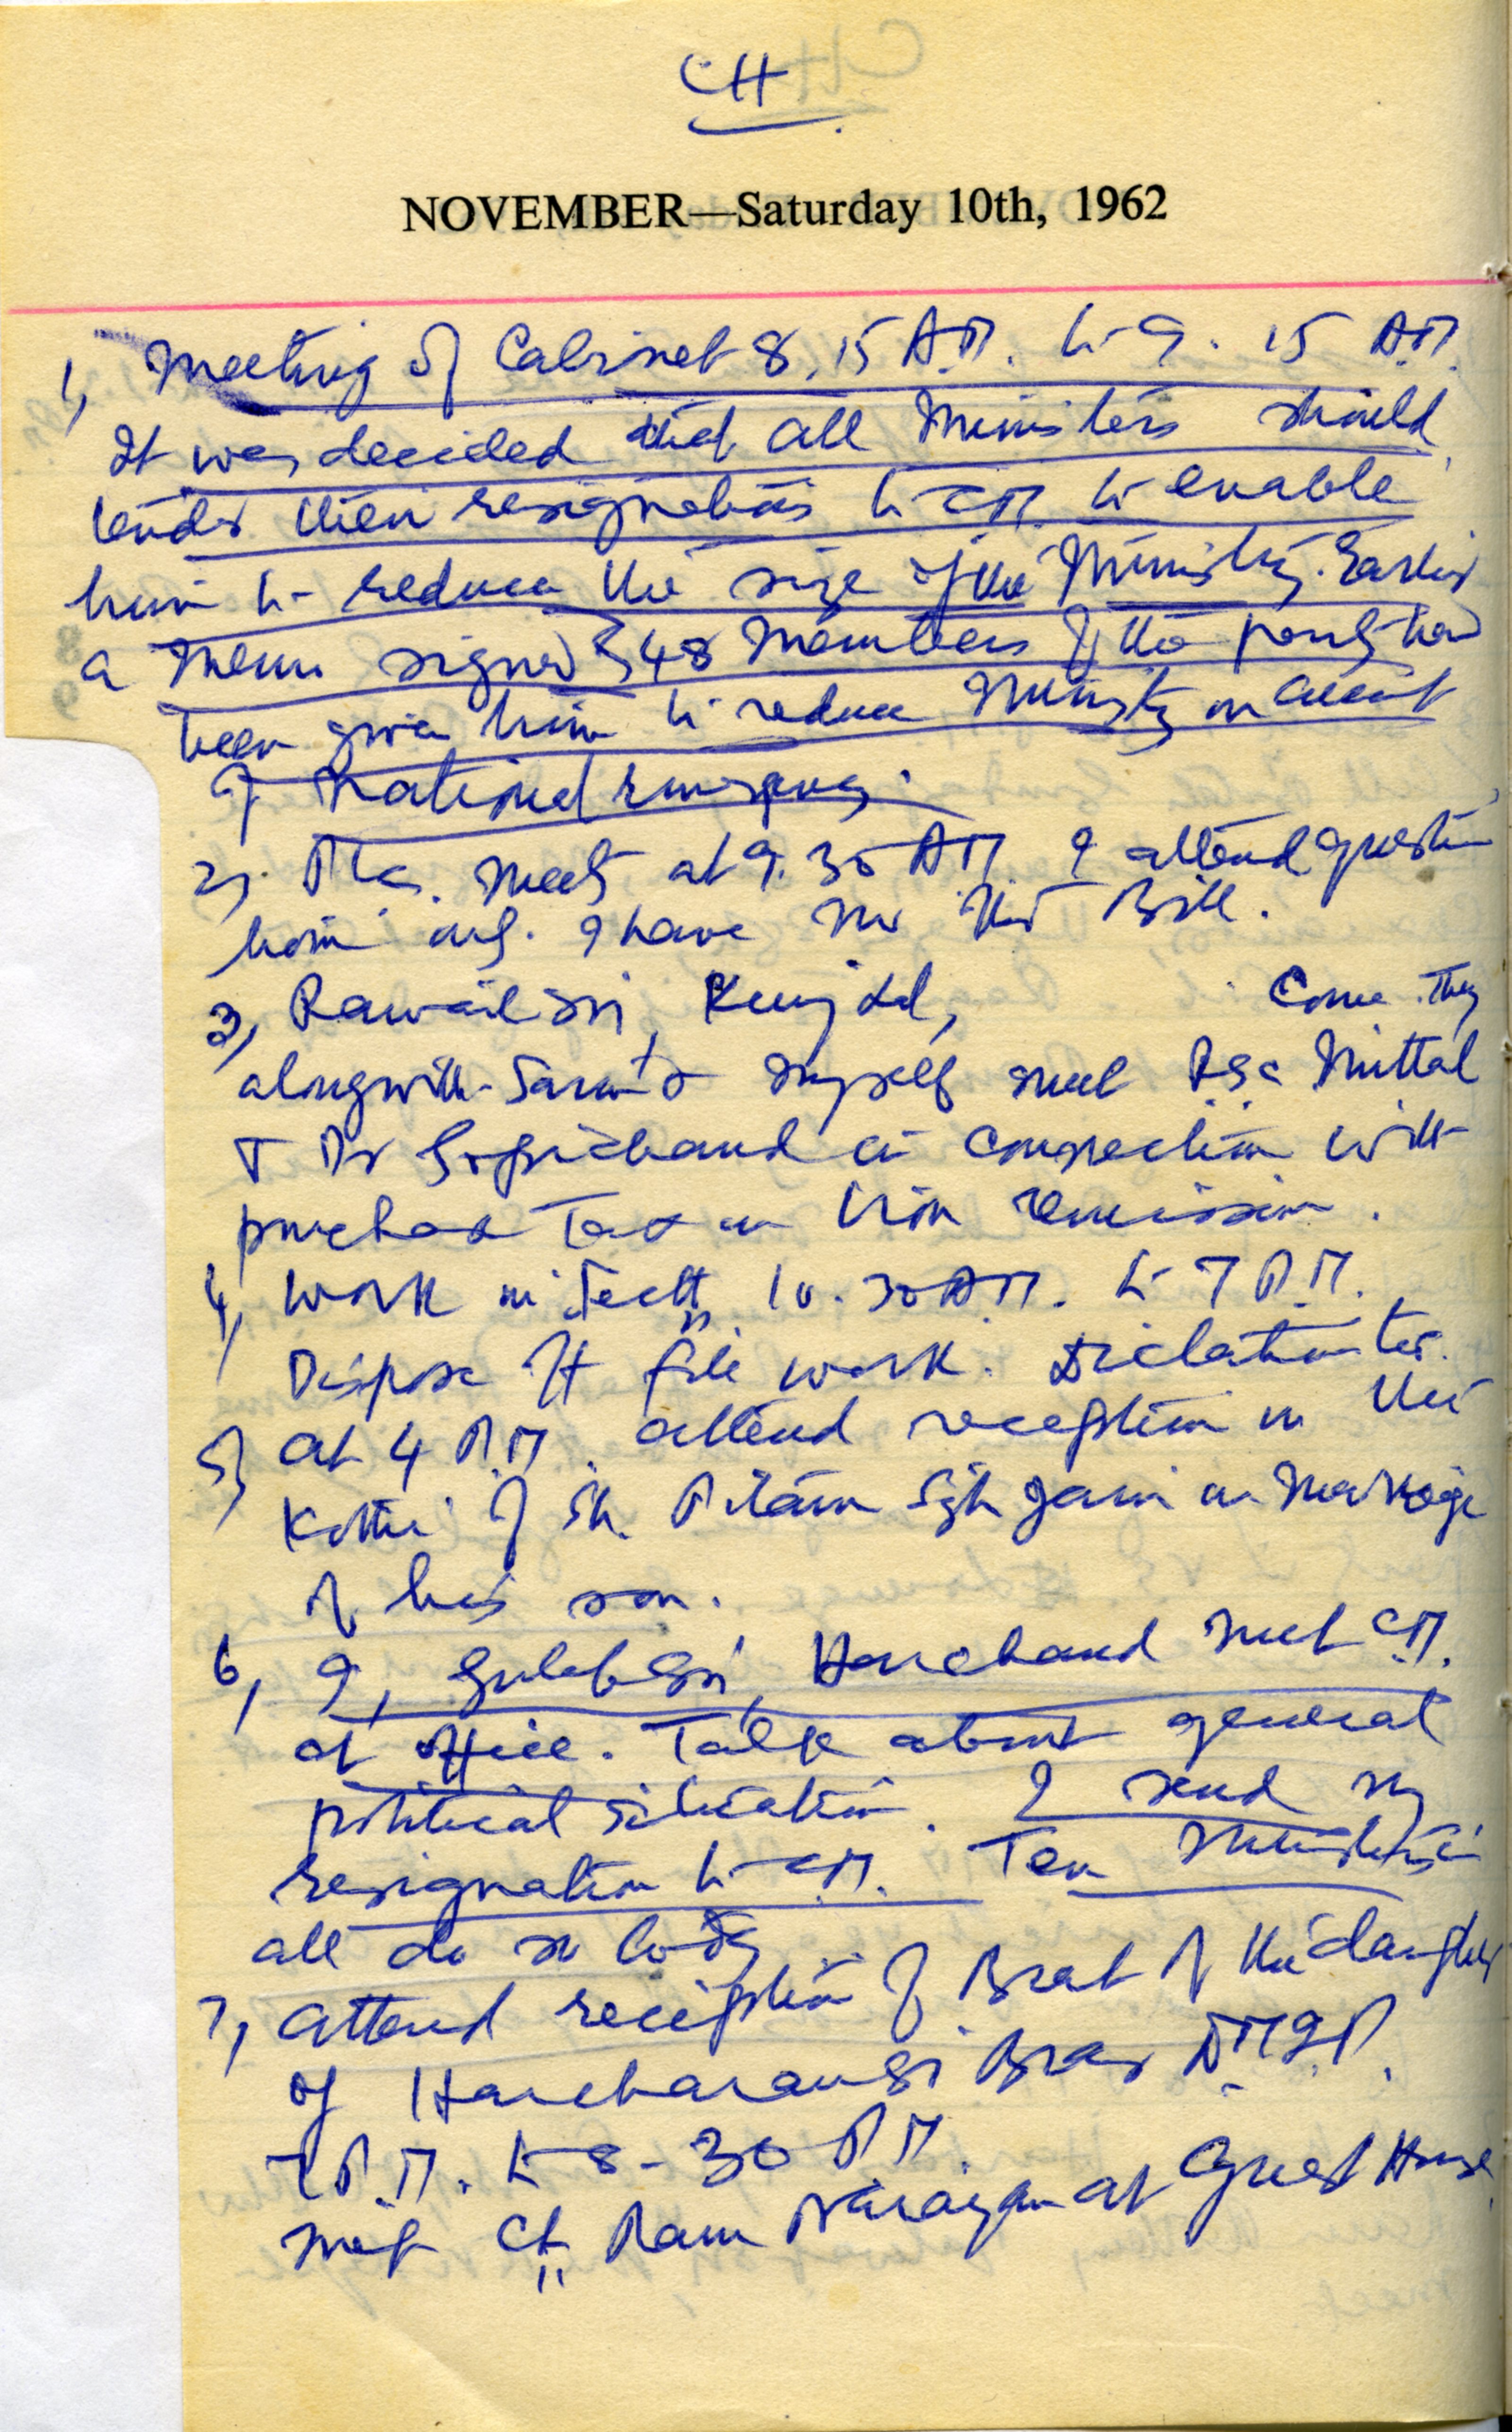 CH
NOVEMBER—Saturday 10th, 1962
1, Meeting of Cabinet 8.15 A.M. to 9.15 A.M.
It was decided that all Ministers should
tender their resignations to C.M. to enable
him to reduce the size of the Ministry. Earlier
a memo signed by 48 Members of the party had
been given him to reduce Ministry on account
of National emergency.
2, meets at 9.30 A.M. I attend question
hour only. I have no Bill.
3, Kunj Lal, Come. They
alongwith myself meet Mittal
& Dr Gopichand in connection with
purchase Tax on remission.
4, Work in Sectt. 10.30 A.M. to 7 P.M.
Dispose of file work. Dictation etc.
5, at 4 P.M. attend reception in the
Kothi of Sh. Pitam Sgh Jain on Marriage
of his son.
6, I, Gulab Sri, Harchand meet C.M.
at office. Talk about general
political situation. I send my
resignation to C.M. Ten Ministers
all do so today
7, attend reception of Brat of the daughter
of Harcharansi Brar
7 P.M. to 8-30 P.M.
meet Ch. Ram Narayan at Guest House